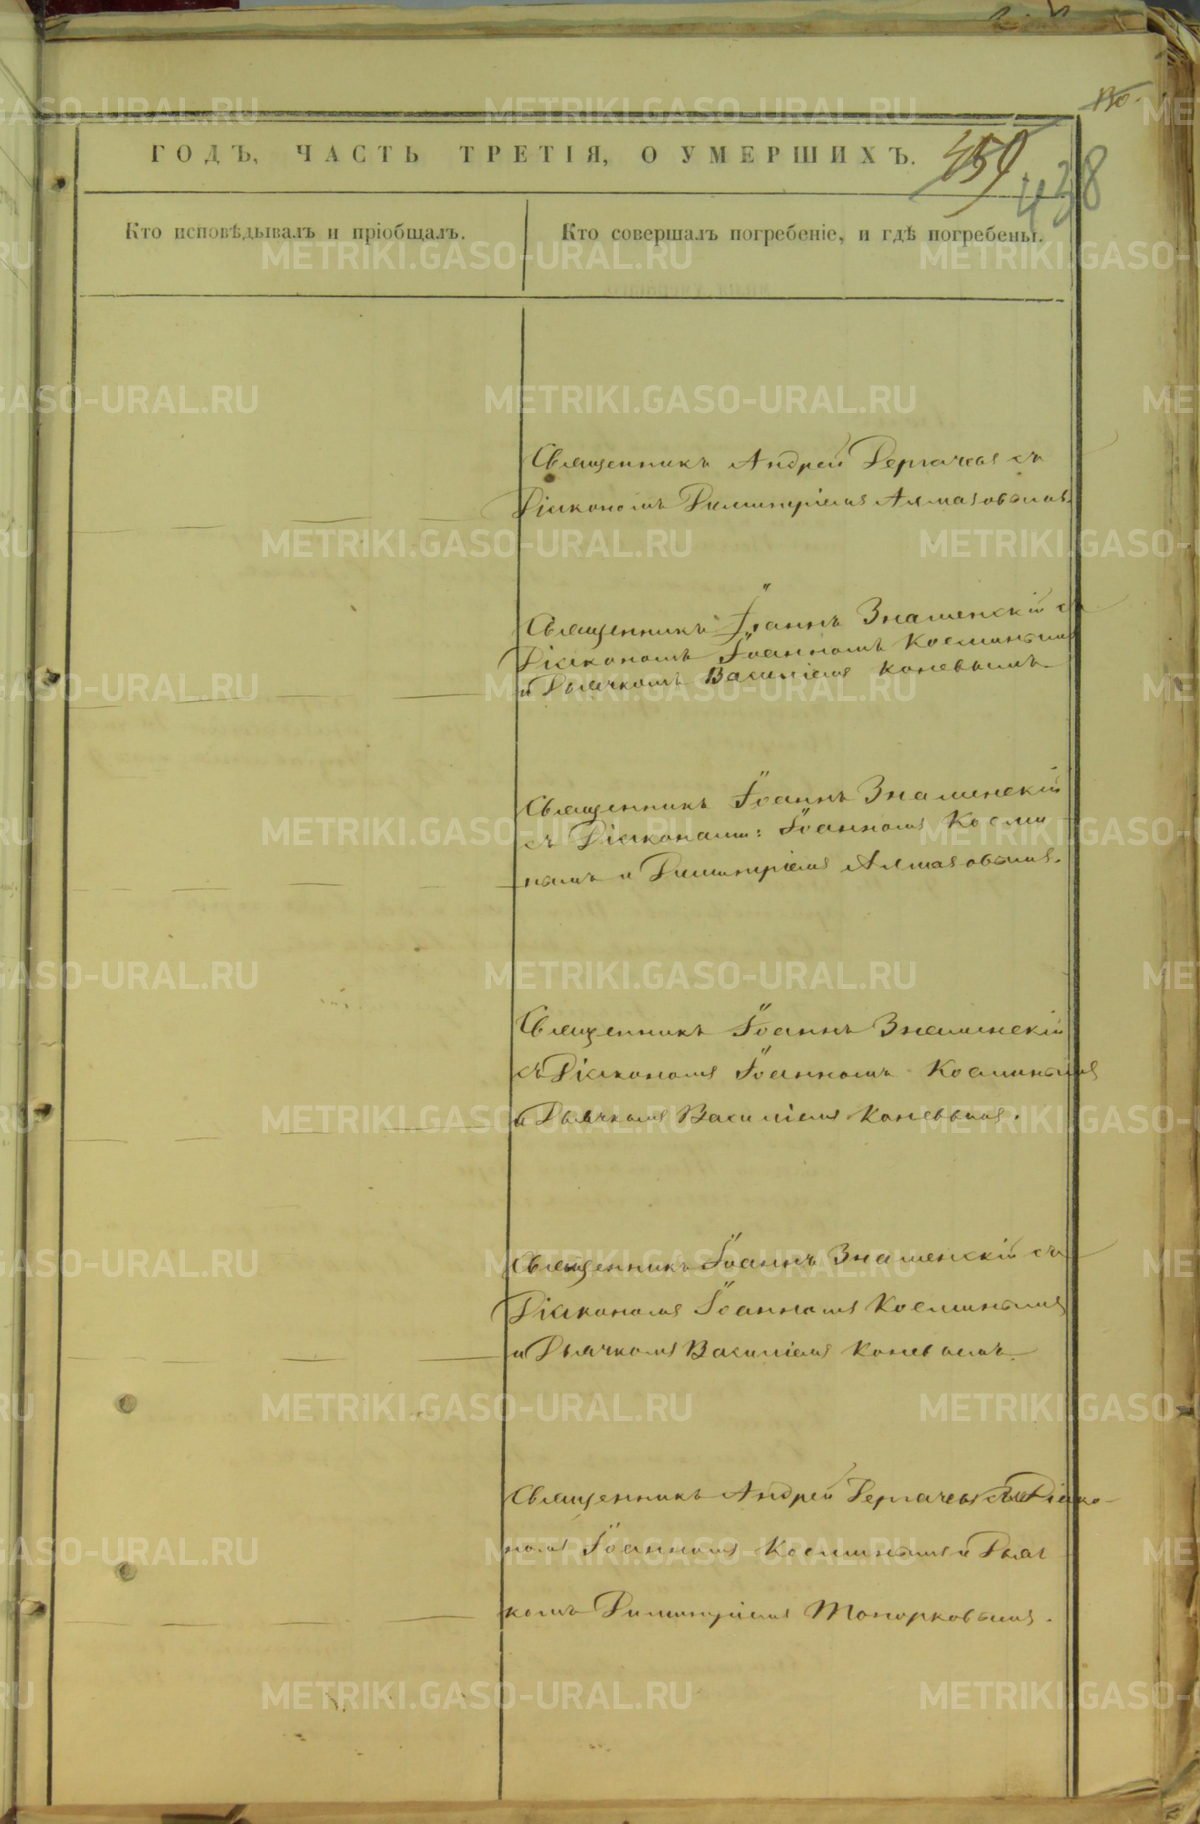 ГОДЪ, ЧАСТЬ ТРЕТІЯ, О УМЕРШИХЪ.
459
438
Кто исповѣдывалъ и пріобщалъ.
Кто совершалъ погребеніе, и гдѣ погребены.
Священникъ Андрей Дергачевъ съ
Діакономъ Димитріемъ Алмазовымъ.
Священникъ Іоаннъ Знаменскій съ
Діакономъ Іоанномъ Косминымъ
и Дьячкомъ Василіемъ Коневымъ.
Священникъ Іоаннъ Знаменскій
съ Діаконами: Іоанномъ Косми
нымъ и Димитріемъ Алмазовымъ.
Священникъ Іоаннъ Знаменскій
съ Діакономъ Іоанномъ Косминымъ
и Дьячкомъ Василіемъ Коневымъ.
Священникъ Іоаннъ Знаменскій съ
Діакономъ Іоанномъ Косминымъ
и Дьячкомъ Василіемъ Коневымъ.
Священникъ Андрей Дергачевъ съ Діако-
номъ Іоанномъ Косминымъ и Дьяч
комъ Димитріемъ Топорковымъ.
METRIKI.GASO-URAL.RU